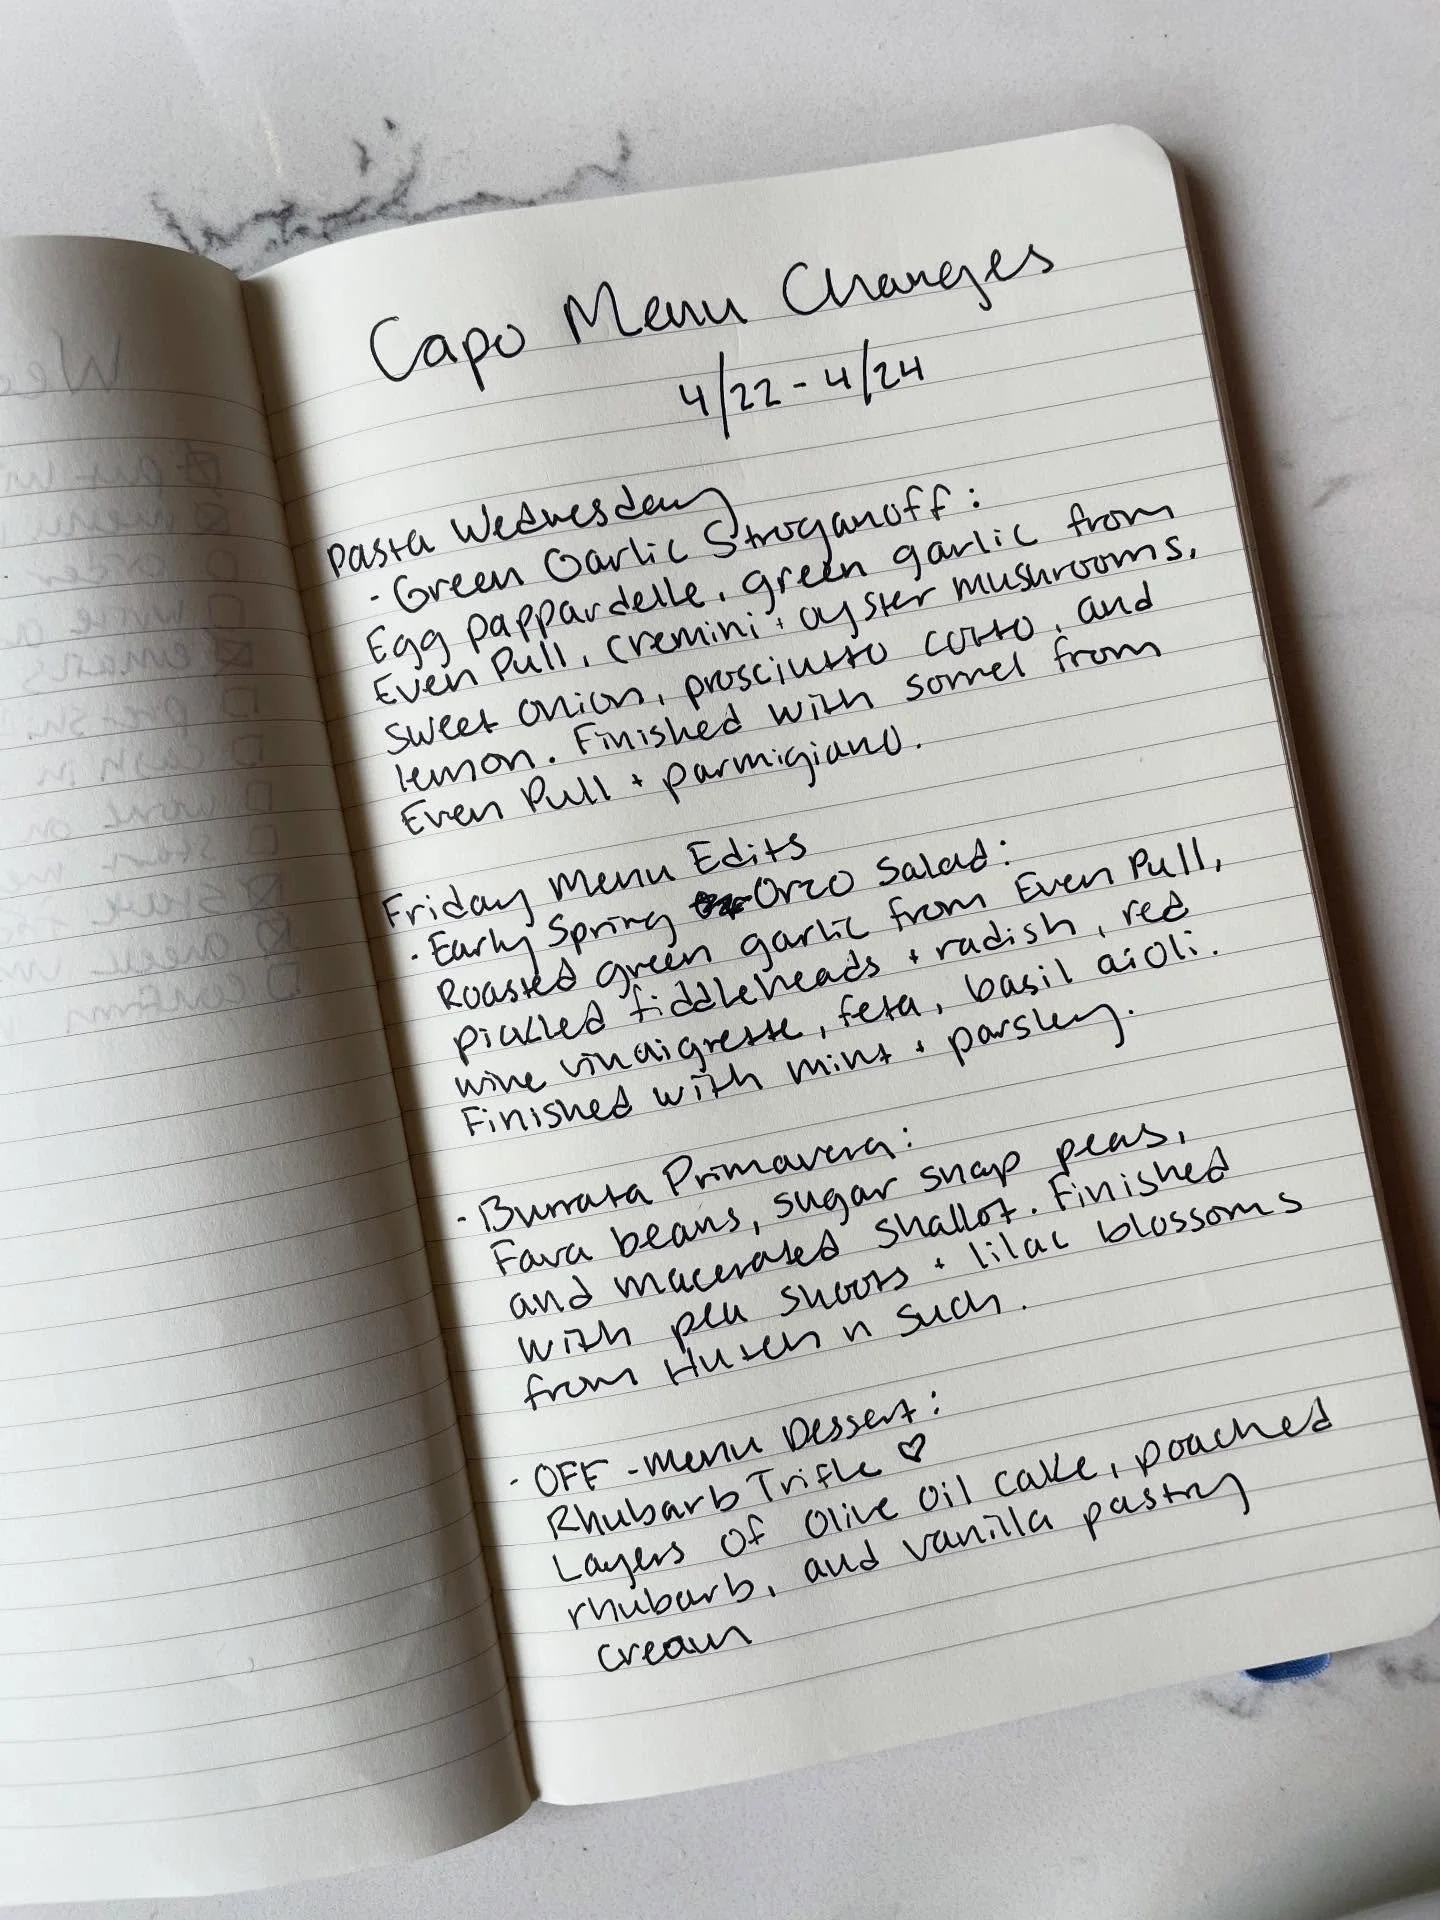 Capo Menu Changes
4/22 - 4/24
Pasta Wednesday
· Green Garlic Stroganoff:
Egg pappardelle, green garlic from
Even Pull, cremini + oyster mushrooms,
sweet onion, prosciutto cotto, and
lemon. Finished with sorrel from
Even Pull + parmigiano.
Friday Menu Edits
· Early Spring Orzo Salad:
Roasted green garlic from Even Pull,
pickled fiddleheads + radish, red
wine vinaigrette, feta, basil aioli.
Finished with mint + parsley.
· Burrata Primavera:
Fava beans, sugar snap peas,
and macerated shallot. Finished
with pea shoots + lilac blossoms
from Hutch n Such.
· OFF-Menu Dessert:
Rhubarb Trifle ♡
Layers of olive oil cake, poached
rhubarb, and vanilla pastry
cream